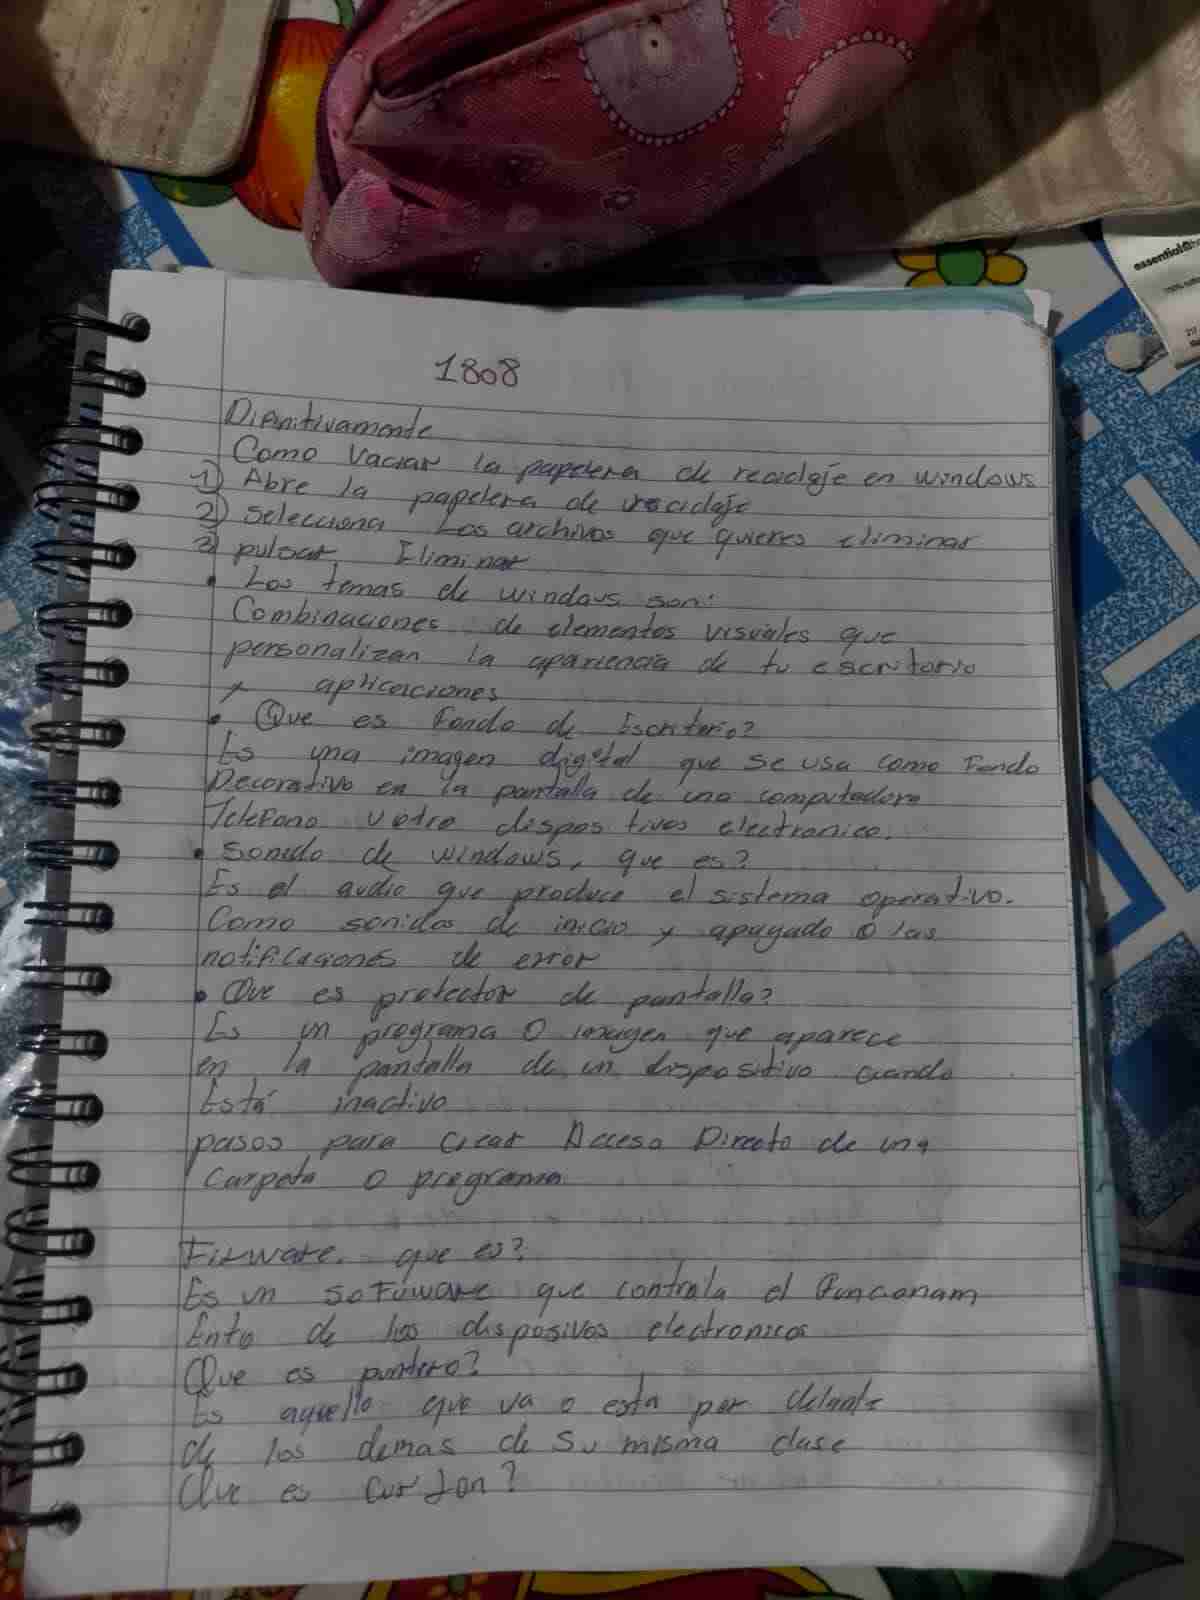 1808
Difinitivamente
Como Vaciar la papelera de reciclaje en windows
1) Abre la papelera de reciclaje
2) Selecciona Los archivos que quieres eliminar
3) pulsar Eliminar
• Los temas de windows son:
Combinaciones de elementos visuales que
personalizan la apariencia de tu escritorio
y aplicaciones
• Que es Fondo de Escritorio?
Es una imagen digital que se usa como Fondo
Decorativo en la pantalla de una computadora
Telefono u otro dispositivos electronico.
• Sonido de windows, que es?
Es el audio que produce el sistema operativo.
Como sonidos de inicio y apagado o las
notificaciones de error
• Que es protector de pantalla?
Es un programa O imagen que aparece
en la pantalla de un dispositivo cuando
Está inactivo
pasos para crear Acceso Directo de una
Carpeta o programa
Firware. que es?
Es un sofuware que controla el funcionam
Ento de los disposivos electronicos
Que es puntero?
Es aquello que va o esta por delante
de los demas de Su misma clase
Que es
essential
100%